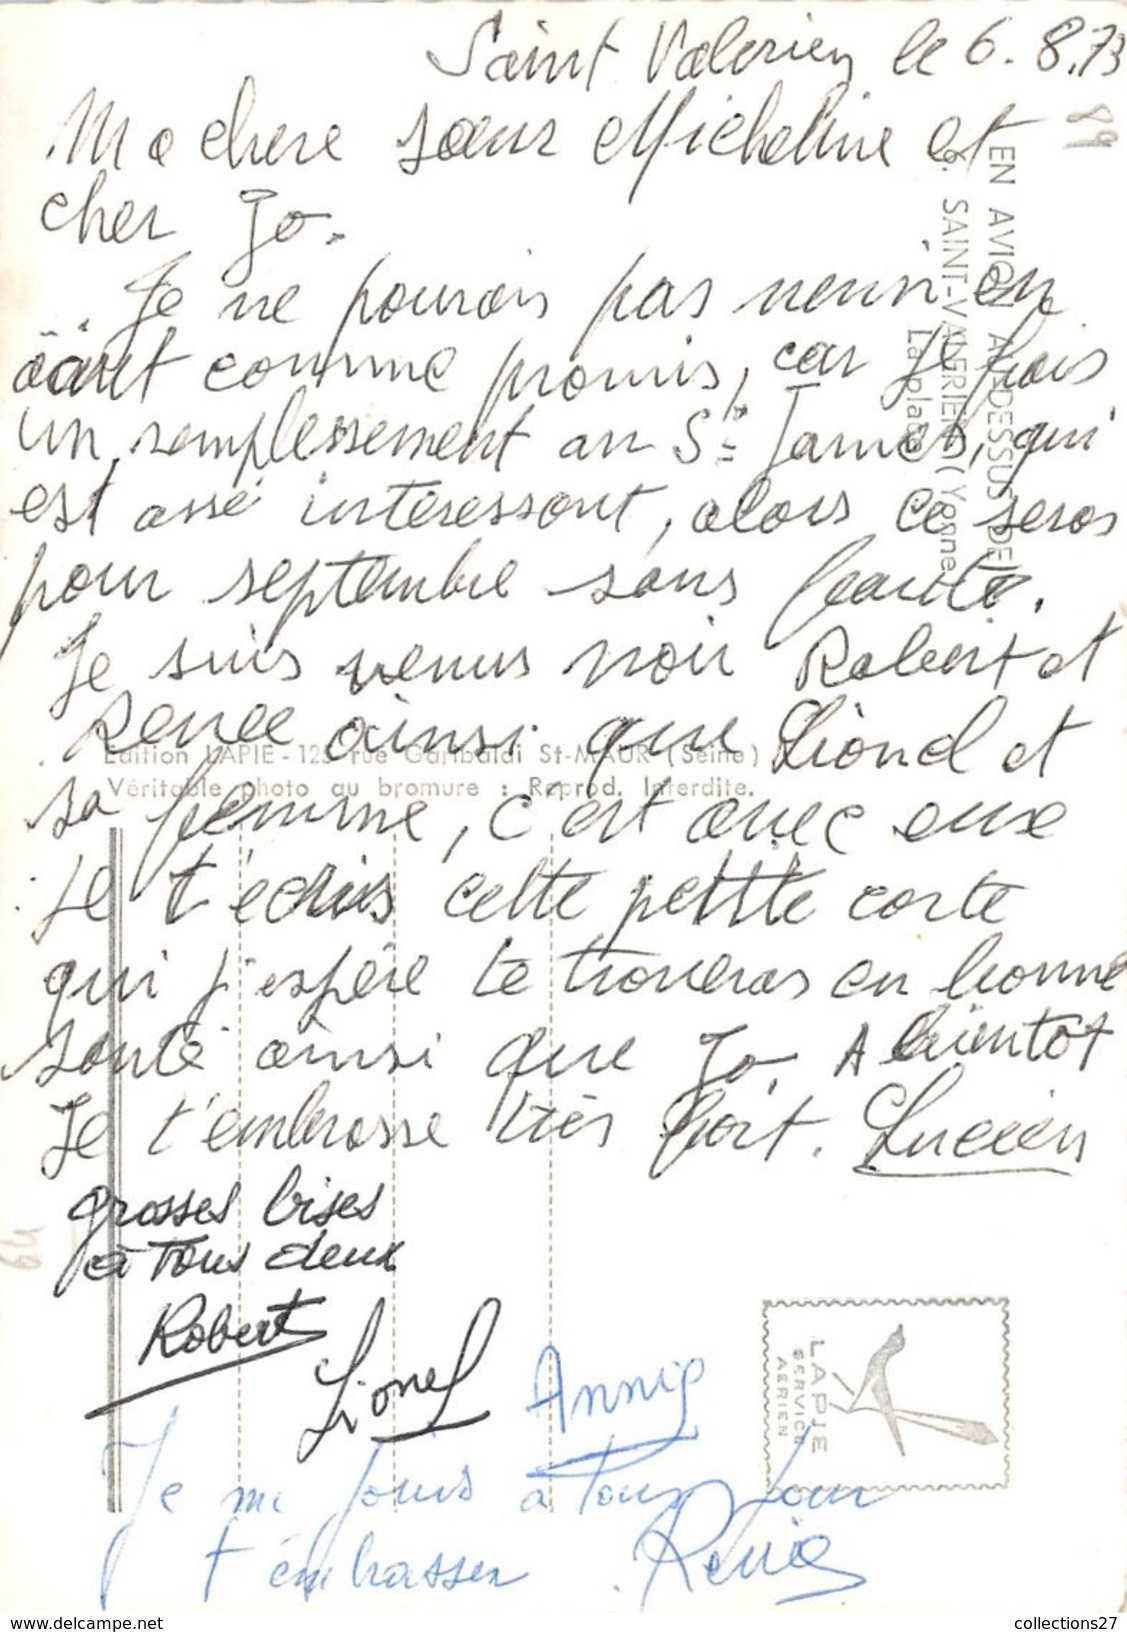 Saint Valerien le 6.8.73
Ma chere sœur Micheline et
cher Jo.
Je ne pourais pas venir en
août comme promis, car je fais
un remplessement au St James, qui
est assé interessant, alors ce seras
pour septembre sans faute.
Je suis venus voir Robert et
Renée ainsi que Lionel et
sa femme, c'est avec eux
Je t'écris cette petite carte
qui j'espère te trouveras en bonne
santé ainsi que Jo. A bientot
Je t'embrasse très fort. Lucien
grosses bises
à tous deux
Robert
Lionel Annie
Je me joins à tous pour
t'embrasser. Renée
EN AVION AU-DESSUS DE
6. SAINT-VALERIEN (Yonne)
La place
Edition LAPIE - 125 rue Garibaldi St-MAUR (Seine)
Véritable photo au bromure : Reprod. Interdite.
LAPIE
SERVICE
AERIEN
89
64
collections27